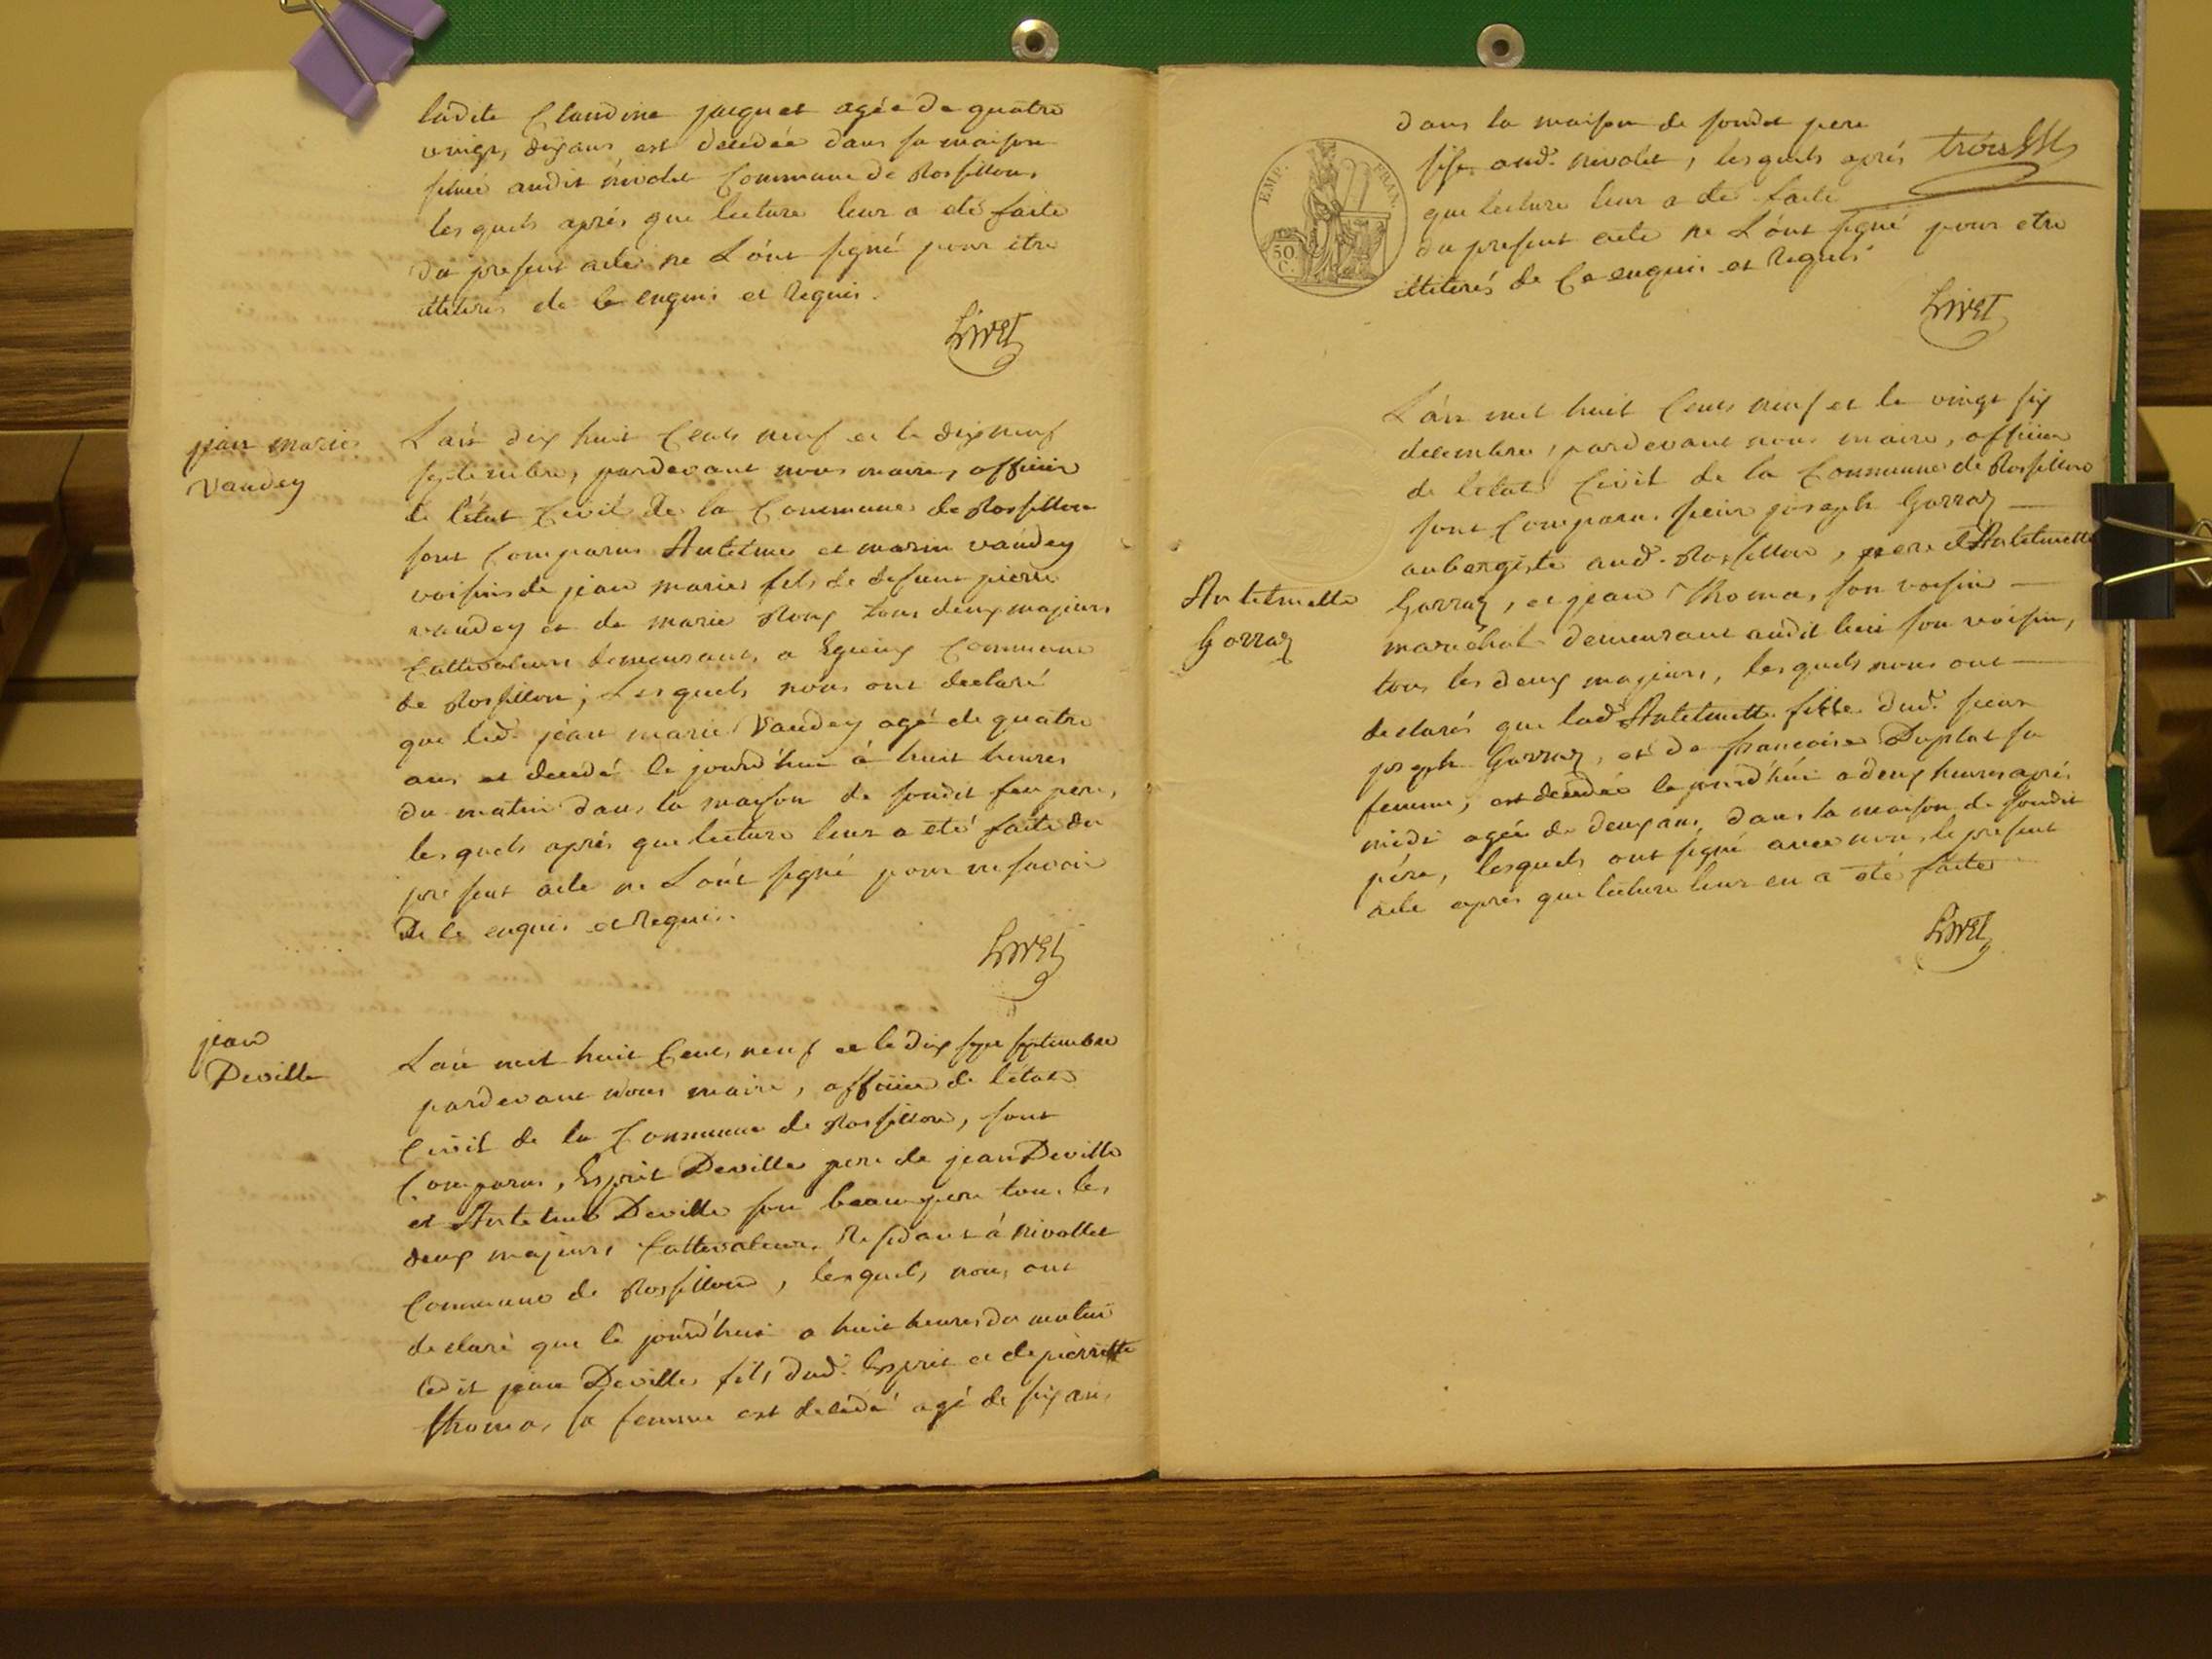 ladite Claudine jacquet agée de quatre
vingt, dix ans est decedée dans sa maison
situé audit nivolet Commune de Rossillon,
les quels aprés que lecture leur a été faite
du present acte ne L'ónt signé pour etre
illiterés de Ce enquis et Requis.
Livet
jean marie
Vaudey
L'an dix huit Cents neuf et le dix neuf
septembre, pardevant nous maire, officier
de l'état Civil de la Commune de Rossillon
sont Comparus Antelme et marin vaudey
voisins de jean marie fils de defunt pierre
vaudey et de marie Roux tous deux majeurs
Cultivateurs demeurant, a Egieux Commune
de Rossillon; Lesquels nous ont declaré
que led. jean marie Vaudey agé de quatre
ans est decedé le jourd'hui à huit heures
du matin dans la maison de sondit feu pere,
les quels aprés que lecture leur a eté faite du
present acte ne L'ónt signé pour ne savoir
De Ce enquis et Requis.
Livet
jean
Deville
L'an mil huit Cents neuf et le dix sept septembre
pardevant nous maire, officier de l'état
Civil de la Commune de Rossillon, sont
Comparus, Esprit Deville pere de jean Deville
et Antelme Deville son beau pere tous les
deux majeurs Cultivateurs Residant à nivollet
Commune de Rossillon, lesquels, nous ont
declaré que le jourd'hui a huit heures du matin
ledit jean Deville fils dud. Esprit et de pierrette
thomas sa femme est decedé agé de six ans
dans la maison de sondit pere
sise aud. nivolet, les quels aprés
que lecture leur a été faite
du present acte ne L'ónt signé pour etre
illiterés de Ce enquis et Requis
trois
EMP. FRAN.
50 C.
Livet
Antelmette
Gorraz
L'an mil huit Cents neuf et le vingt six
decembre, pardevant nous maire, officier
de l'état Civil de la Commune de Rossillon
sont Comparus sieur joseph Gorraz
aubergiste aud. Rossillon, pere d'Antelmette
Gorraz, et jean Thomas, son voisin
maréchal demeurant audit lieu son voisin,
tous les deux majeurs, lesquels nous ont
declarés que lad. Antelmette fille dud. sieur
joseph Gorraz, et de francoise Duplat sa
femme, est decedée le jourd'hui a deux heures aprés
midi agée de deux ans, dans la maison de sondit
pére, lesquels ont signé avec nous le present
acte aprés que lecture leur en a eté faite
Livet